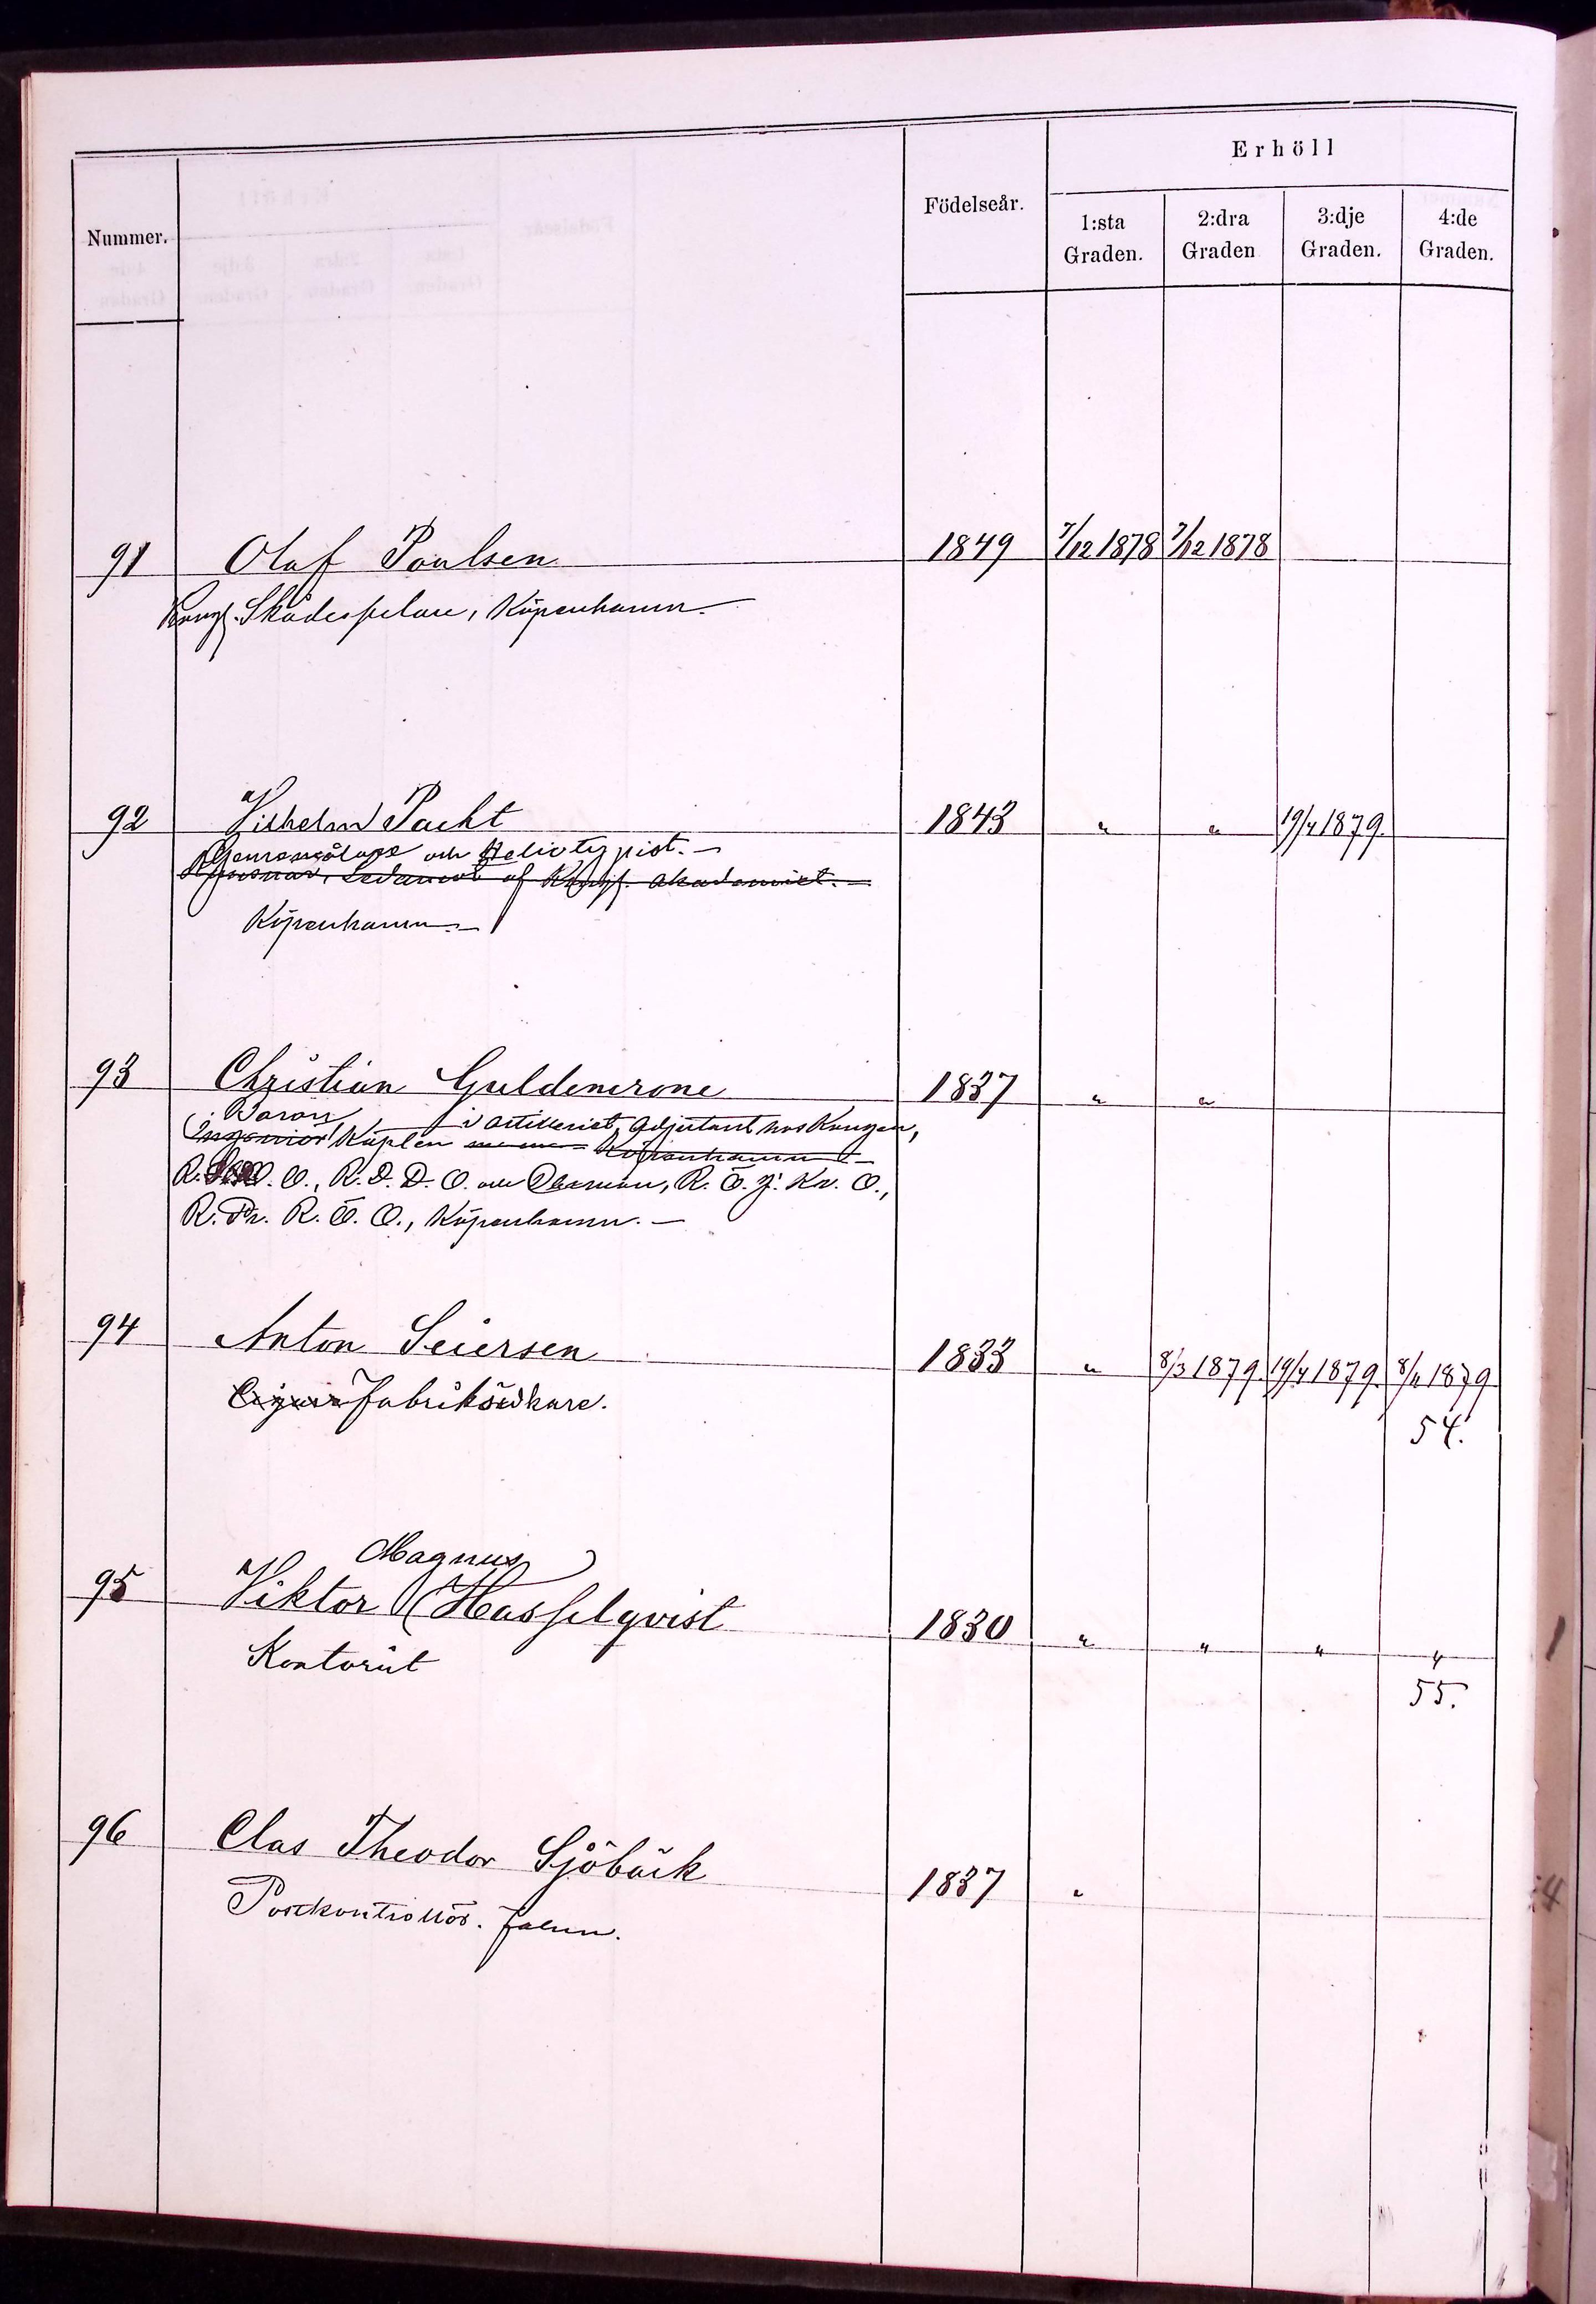 Erhöll
Nummer. Födelseår. 1:sta Graden. 2:dra Graden 3:dje Graden. 4:de Graden.
91 Olaf Poulsen 1849 7/12 1878 7/12 1878
Kongl. Skådespelare, Köpenhamn.
92 Vilhelm Pacht 1843 " " 19/4 1879
Genremålare och Heliotypist.—
Ledamot af Kongl. Akademiet.—
Köpenhamn.—
93 Christian Güldencrone 1837 " "
Baron i Artilleriet, Adjutant hos Kungen,
Ingeniör Kapten Köpenhamn—
R. O., R. D. D. O. och Dbrman, R. Ö. J. Kr. O.,
R. Pr. R. Ö. O., Köpenhamn.—
94 Anton Seiersen 1833 " 8/3 1879 19/4 1879. 8/11 1879
Cigarr Fabriksidkare. 54.
Magnus
95 Viktor Hasselqvist 1830 " " " "
Kontorist 55.
96 Clas Theodor Sjöbäck 1837 "
Postkontrollör. Falun.